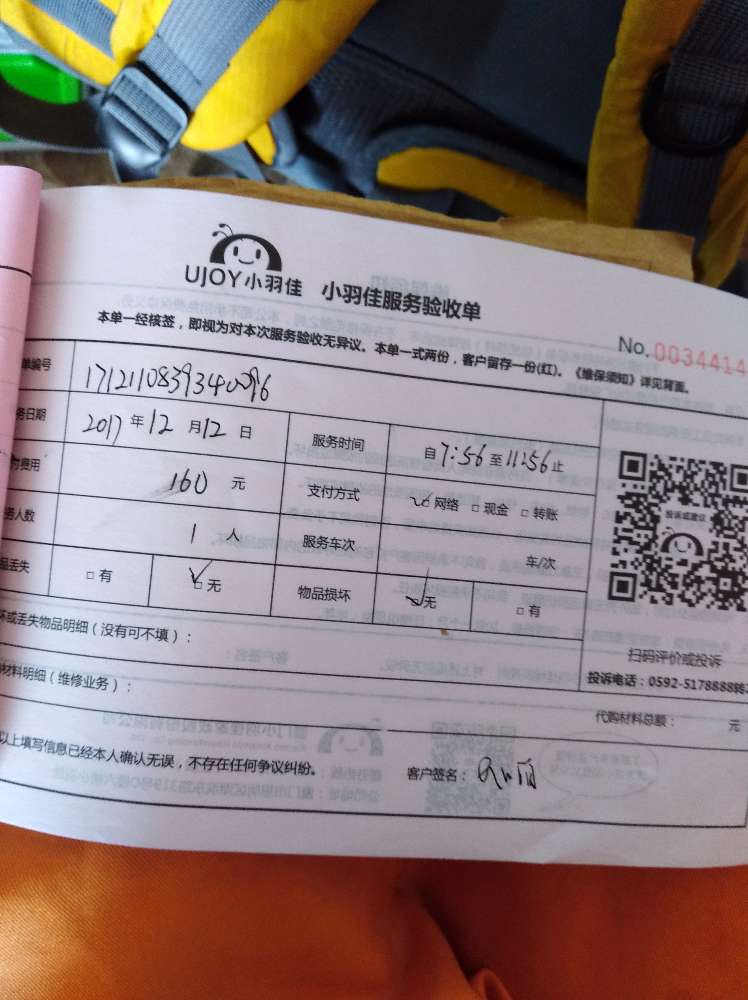 UJOY小羽佳 小羽佳服务验收单
本单一经核签，即视为对本次服务验收无异议。本单一式两份，客户留存一份(红)。《维保须知》详见背面。
No.0034414
单编号 1712110839340096
务日期 2017年12月12日 服务时间 自7:56至11:56止
付费用 160元 支付方式 ☑网络 □现金 □转账
务人数 1人 服务车次 车/次
品丢失 □有 ☑无 物品损坏 ☑无 □有
投诉或建议
扫码评价或投诉
投诉电话：0592-5178888转
坏或丢失物品明细（没有可不填）：
材料明细（维修业务）：
代购材料总额： 元
以上填写信息已经本人确认无误，不存在任何争议纠纷。 客户签名：